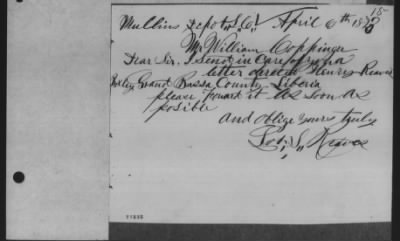 15
Mullins Depot S,C, April 6th 187
Mr William Coppinger
Dear Sir. I send in Care of you a
letter directed Henry Reaves
Grand Bassa County Liberia
please foward it as soon as
posible
and oblige yours truly
Reaves